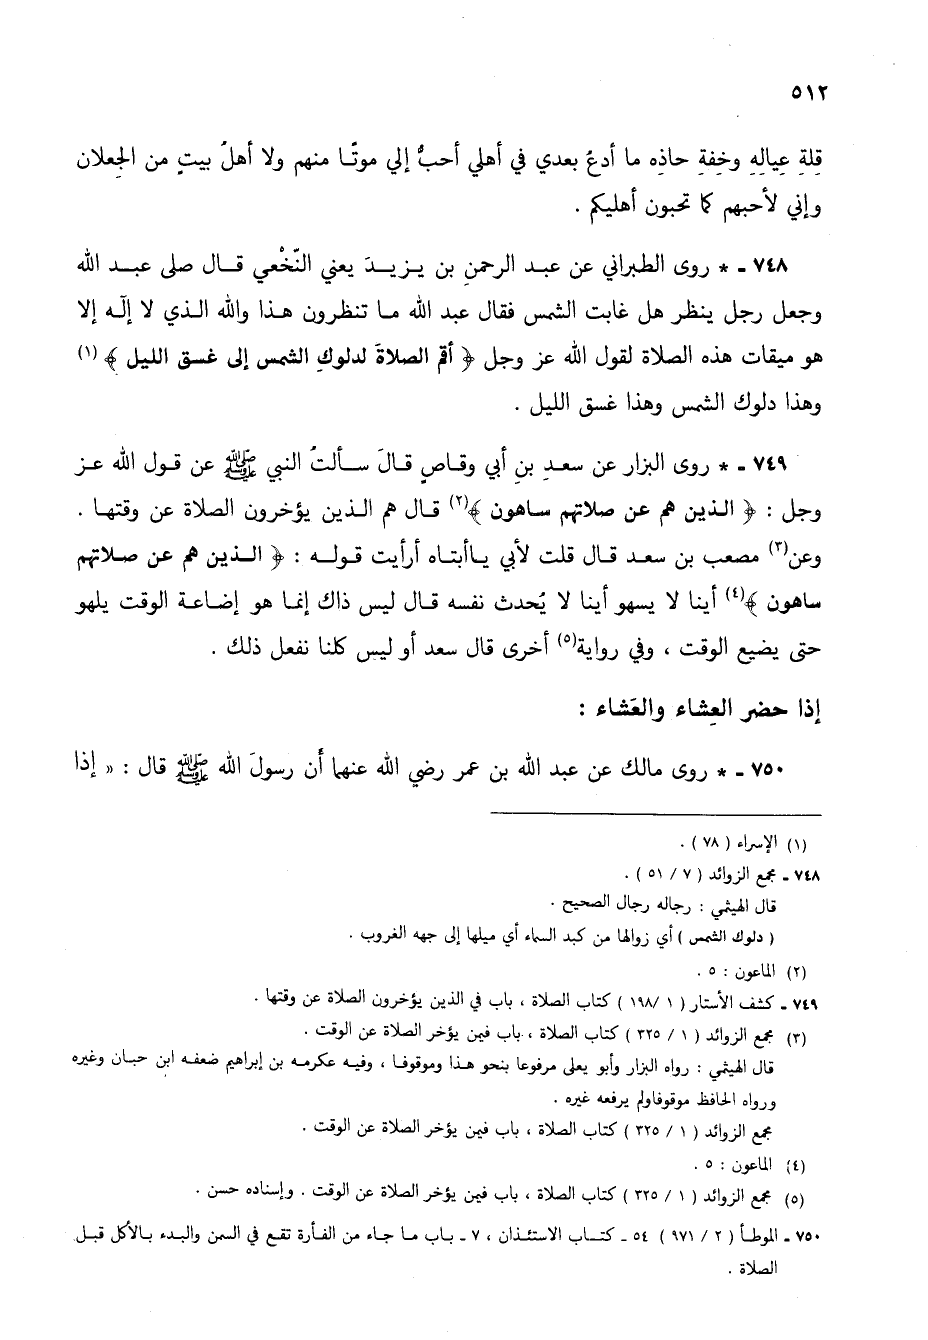 ٥١٢
قلةِ عيالِهِ وخفةِ حاذِه ما أدعُ بعدي في أهلي أحبُّ إلي موتًا منهم ولا أهلُ بيتٍ من الجعلان
وإني لأحبهم كما تحبون أهليكم .
٧٤٨ - * روى الطبراني عن عبد الرحمنِ بن يزيدَ يعني النَّخْعي قال صلى عبد الله
وجعل رجل ينظر هل غابت الشمس فقال عبد الله ما تنظرون هذا والله الذي لا إلٓه إلا
هو ميقات هذه الصلاة لقول الله عز وجل ﴿ أقم الصلاةَ لدلوكِ الشمسِ إلى غسق الليل ﴾ (١)
وهذا دلوك الشمس وهذا غسق الليل .
٧٤٩ - * روى البزار عن سعدِ بنِ أبي وقاصٍ قالَ سألتُ النبي ﷺ عن قول الله عز
وجل : ﴿ الذين هم عن صلاتهم ساهون ﴾(٢) قال هم الذين يؤخرون الصلاة عن وقتها .
وعن(٣) مصعب بن سعد قال قلت لأبي ياأبتاه أرأيت قوله : ﴿ الذين هم عن صلاتهم
ساهون ﴾(٤) أينا لا يسهو أينا لا يُحدث نفسه قال ليس ذاك إنما هو إضاعة الوقت يلهو
حتى يضيع الوقت ، وفي رواية(٥) أخرى قال سعد أو ليس كلنا نفعل ذلك .
إذا حضر العِشاء والعَشاء :
٧٥٠ - * روى مالك عن عبد الله بن عمر رضي الله عنهما أن رسولَ الله ﷺ قال : « إذا
(١) الإسراء ( ٧٨ ) .
٧٤٨ - مجمع الزوائد ( ٧ / ٥١ ) .
قال الهيثمي : رجاله رجال الصحيح .
( دلوك الشمس ) أي زوالها من كبد السماء أي ميلها إلى جهه الغروب .
(٢) الماعون : ٥ .
٧٤٩ - كشف الأستار ( ١ /١٩٨ ) كتاب الصلاة ، باب في الذين يؤخرون الصلاة عن وقتها .
(٣) مجمع الزوائد ( ١ / ٣٢٥ ) كتاب الصلاة ، باب فيمن يؤخر الصلاة عن الوقت .
قال الهيثمي : رواه البزار وأبو يعلى مرفوعا بنحو هذا وموقوفا ، وفيه عكرمه بن إبراهيم ضعفه ابن حبان وغيره
ورواه الحافظ موقوفاولم يرفعه غيره .
مجمع الزوائد ( ١ / ٣٢٥ ) كتاب الصلاة ، باب فيمن يؤخر الصلاة عن الوقت .
(٤) الماعون : ٥ .
(٥) مجمع الزوائد ( ١ / ٣٢٥ ) كتاب الصلاة ، باب فيمن يؤخر الصلاة عن الوقت . وإسناده حسن .
٧٥٠ - الموطأ ( ٢ / ٩٧١ ) ٥٤ - كتاب الاستئذان ، ٧ - باب ما جاء من الفأرة تقع في السمن والبدء بالأكل قبل
الصلاة .